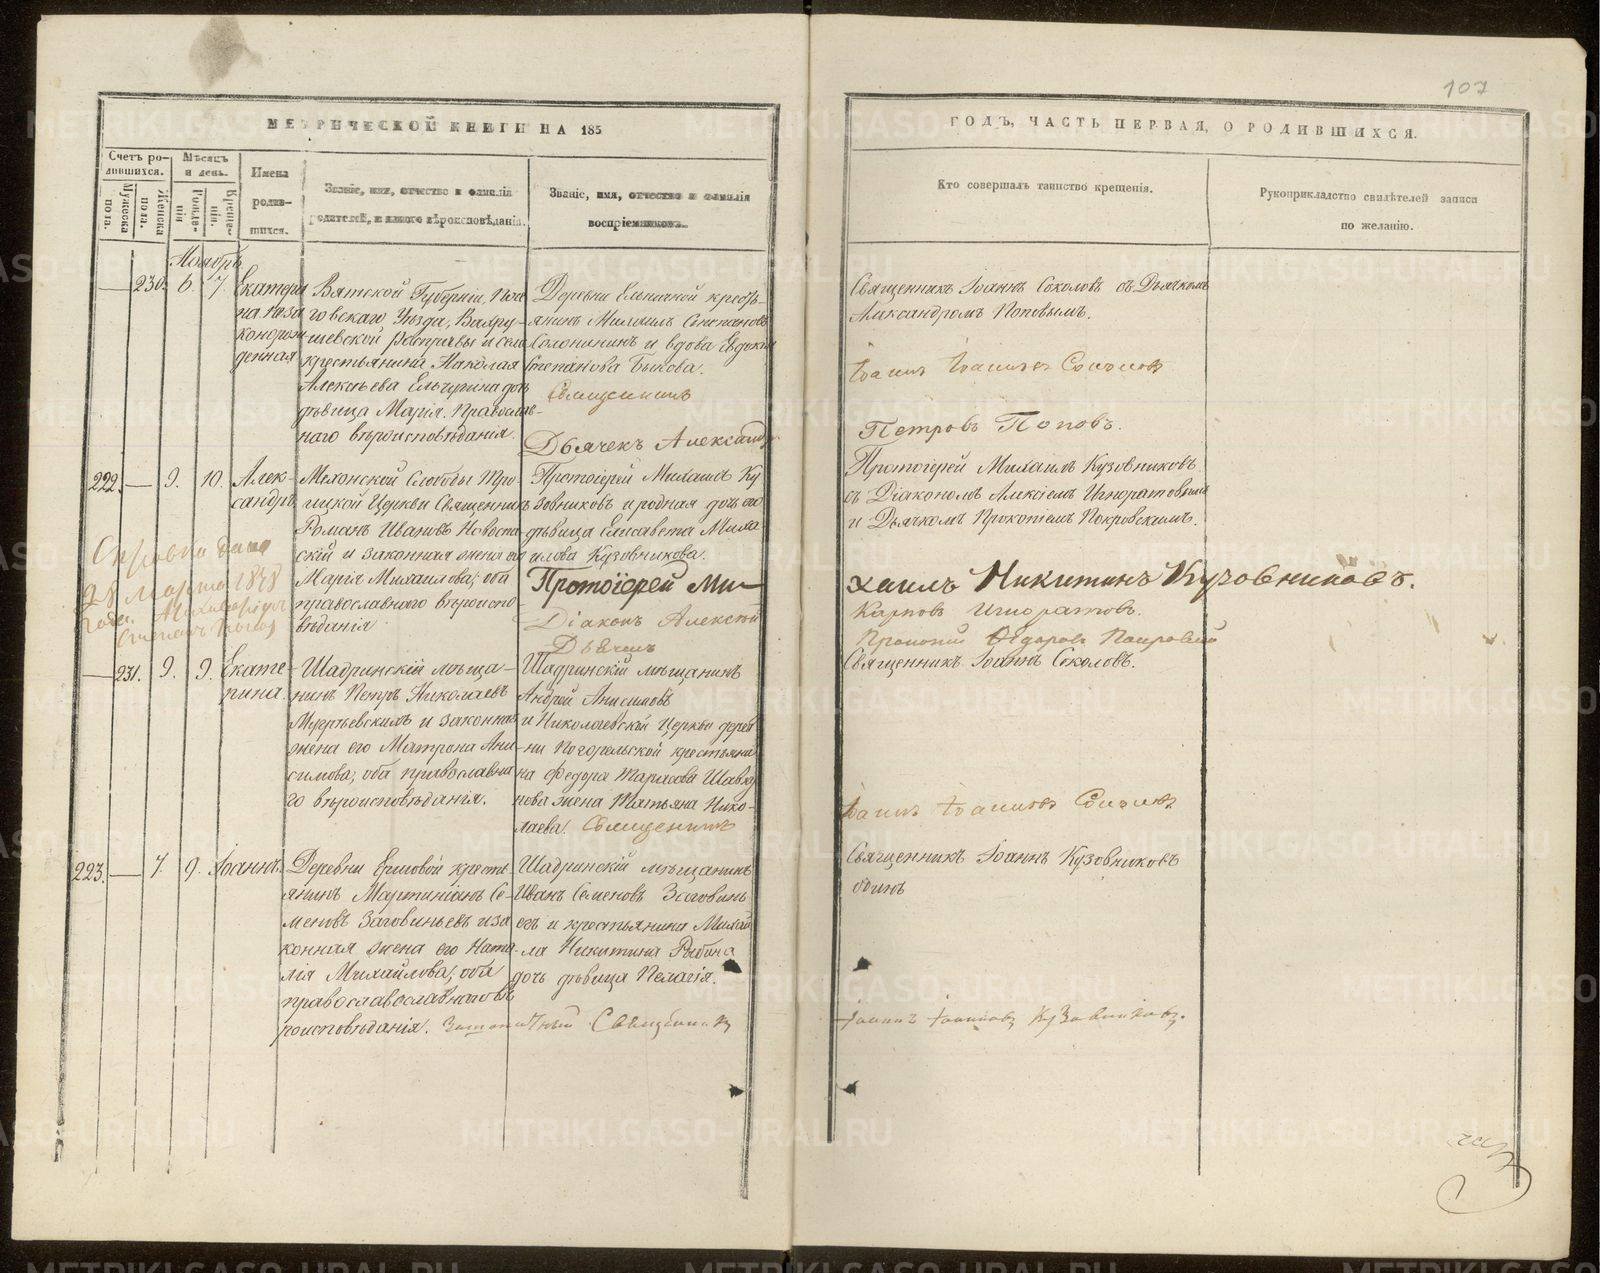 107
МЕТРИЧЕСКОЙ КНИГИ НА 185
ГОДЪ, ЧАСТЬ ПЕРВАЯ, О РОДИВШИХСЯ.
Счетъ родившихся.
Мужеска пола.
Женска пола.
Мѣсяцъ и день.
Рожденія.
Крещенія.
Имена родившихся.
Званіе, имя, отчество и фамилія
родителей, и какого вѣроисповѣданія.
Званіе, имя, отчество и фамилія
воспріемниковъ.
Кто совершалъ таинство крещенія.
Рукоприкладство свидѣтелей записи
по желанію.
Ноябрь
230. 6. 7.
Екатери
на неза
конорож
денная
Вятской Губерніи,
говскаго Уѣзда, Вахру-
шевской Расправы и села
крестьянина Николая
Алексѣева Ельчугина дочь
дѣвица Марія. Православ-
наго вѣроисповѣданія.
Деревни Ельничной кресть-
янинъ Михаилъ Степановъ
Солонининъ и вдова Евдокія
Степанова Быкова.
Священникъ
Дьячекъ Александръ
Священникъ Іоаннъ Соколовъ съ Дьячкомъ
Александромъ Поповымъ.
Іоаннъ Іоанновъ Соколовъ
Петровъ Поповъ.
222. — 9. 10.
Алек-
сандръ
Мехонской Слободы Тро-
ицкой Церкви Священникъ
Романъ Ивановъ Новоста
скій и законная жена его
Марія Михаилова; оба
православнаго вѣроиспо-
вѣданія
Протоіерей Михаилъ Ку
зовниковъ и родная дочь его
дѣвица Елисавета Миха
илова Кузовникова.
Протоіерей Ми-
Діаконъ Алексѣй
Дьячекъ
Протоіерей Михаилъ Кузовниковъ
съ Діакономъ Алексіемъ Игноратовымъ
и Дьячкомъ Прокопіемъ Покровскимъ.
хаилъ Никитинъ Кузовниковъ.
Карповъ Игноратовъ.
Прокопій Ѳедоровъ Покровскій
Справка дана
28 Марта 1878
года.
231. 9. 9.
Екате-
рина.
Шадринскій мѣща-
нинъ Петръ Николаевъ
и законная
жена его Матрона Ани-
симова; оба православна
го вѣроисповѣданія.
Шадринскій мѣщанинъ
Андрей Анисимовъ
и Николаевской Церкви дерев
ни Погорѣльской крестьяни
на Федора Тарасова
нова жена Татьяна Нико-
лаева. Священникъ
Священникъ Іоаннъ Соколовъ.
Іоаннъ Іоанновъ Соколовъ
223. — 7. 9.
Іоаннъ.
Деревни Ершовой кресть
янинъ Мартиніанъ Се-
меновъ Заговиньевъ и за
конная жена его Ната-
лія Михайлова; оба
православославнаго вѣ
роисповѣданія.
Шадринскій мѣщанинъ
Иванъ Семеновъ Заговинь
евъ и крестьянина Михай
ла Никитина Рыбина
дочь дѣвица Пелагія.
Заштатный Священникъ
Священникъ Іоаннъ Кузовниковъ
одинъ
Іоаннъ Іоанновъ Кузовниковъ.
METRIKI.GASO-URAL.RU